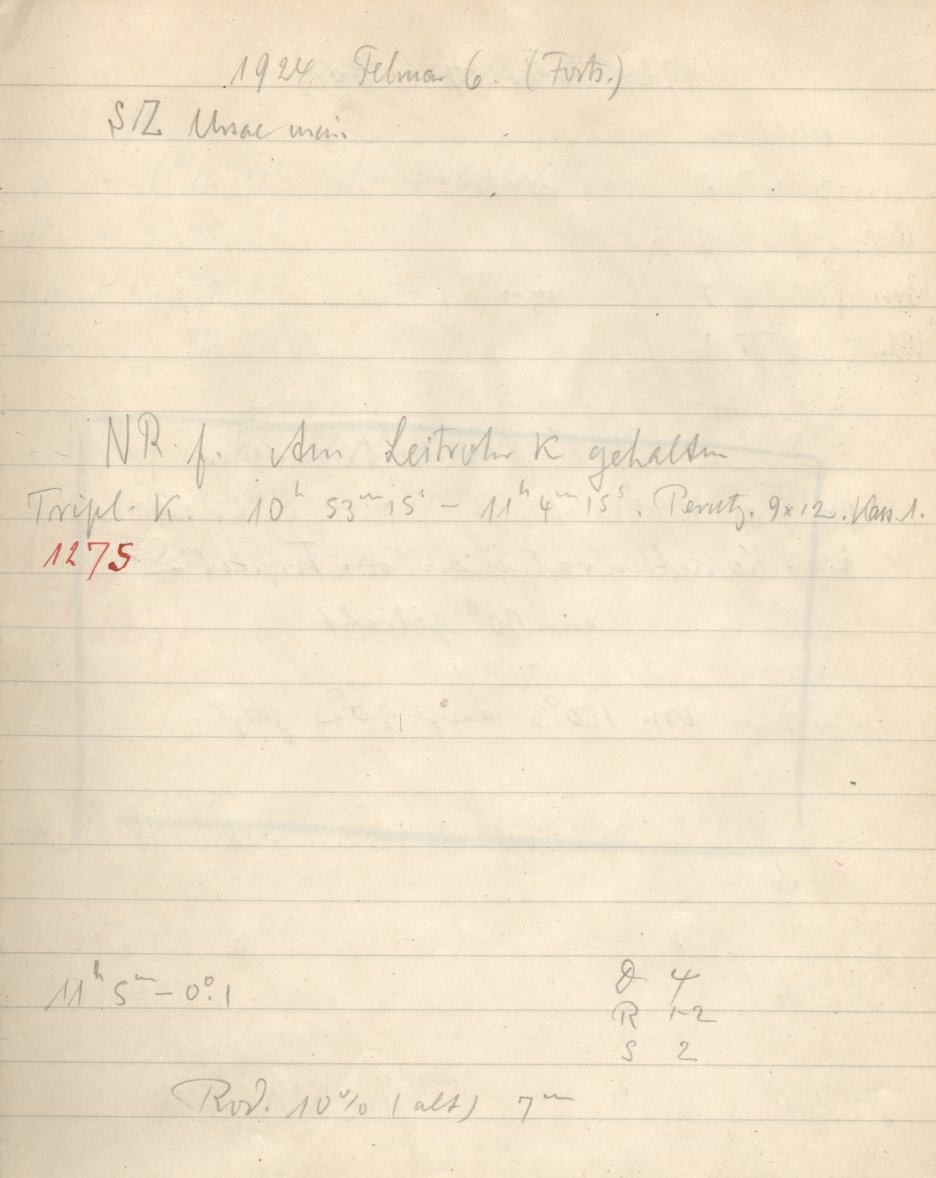 1924 Februar 6. (Forts.)
SZ Ursae mai.
NR. f. Am Leitrohr K gehalten
Tripl. K. 10ʰ 53ᵐ 15ˢ – 11ʰ 4ᵐ 15ˢ. Perutz. 9x12. Kass. 1.
1275
11ʰ 5ᵐ – 0°.1
D 4
R 1-2
S 2
Rod. 10% (alt) 7ᵐ